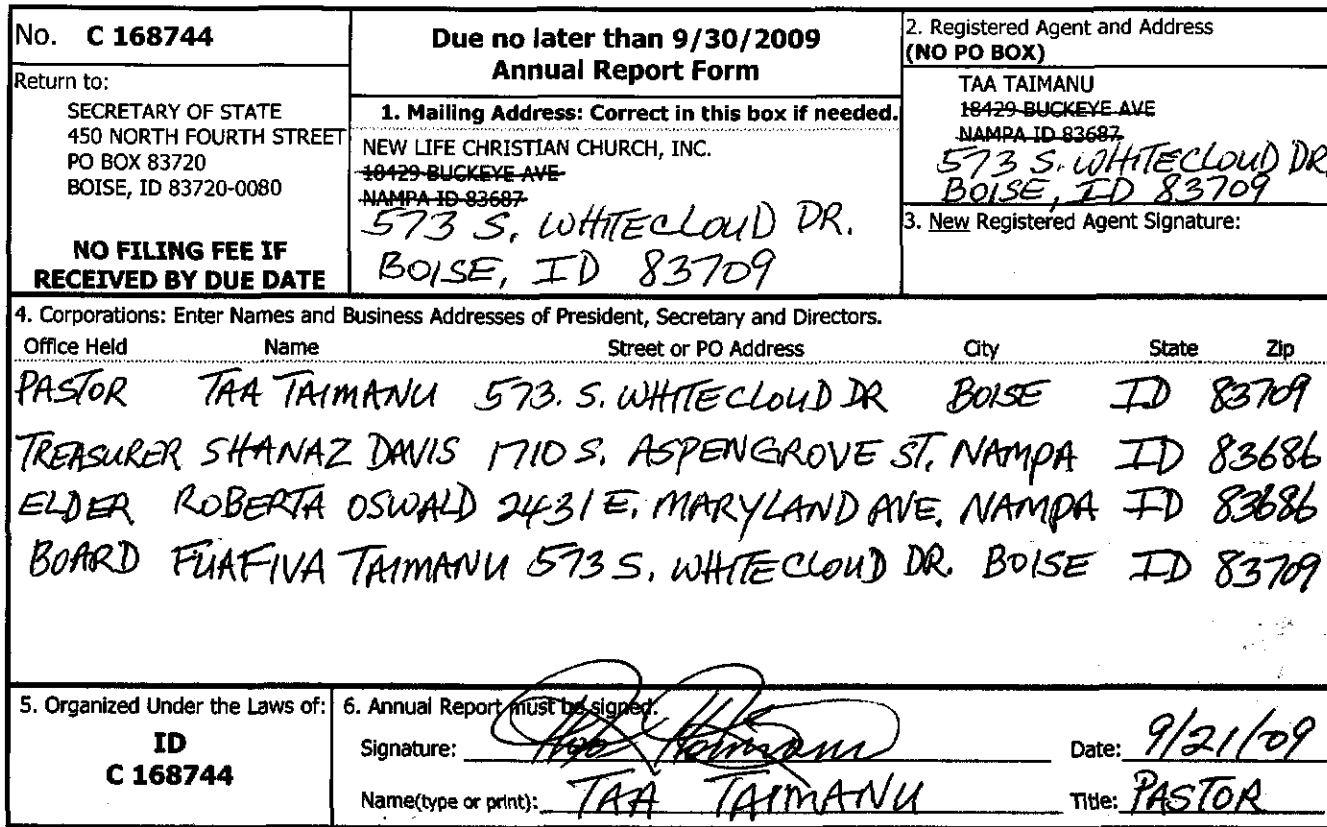 No. C 168744
Return to:
SECRETARY OF STATE
450 NORTH FOURTH STREET
PO BOX 83720
BOISE, ID 83720-0080
NO FILING FEE IF
RECEIVED BY DUE DATE
Due no later than 9/30/2009
Annual Report Form
1. Mailing Address: Correct in this box if needed.
NEW LIFE CHRISTIAN CHURCH, INC.
18429 BUCKEYE AVE
NAMPA ID 83687
573 S. WHITECLOUD DR.
BOISE, ID 83709
2. Registered Agent and Address
(NO PO BOX)
TAA TAIMANU
18429 BUCKEYE AVE
NAMPA ID 83687
573 S. WHITECLOUD DR.
BOISE, ID 83709
3. New Registered Agent Signature:
4. Corporations: Enter Names and Business Addresses of President, Secretary and Directors.
Office Held Name Street or PO Address City State Zip
PASTOR TAA TAIMANU 573. S. WHITECLOUD DR BOISE ID 83709
TREASURER SHANAZ DAVIS 1710 S. ASPENGROVE ST. NAMPA ID 83686
ELDER ROBERTA OSWALD 2431 E. MARYLAND AVE. NAMPA ID 83686
BOARD FUAFIVA TAIMANU 573 S. WHITECLOUD DR. BOISE ID 83709
5. Organized Under the Laws of:
ID
C 168744
6. Annual Report must be signed.
Signature:
Date: 9/21/09
Name(type or print): TAA TAIMANU
Title: PASTOR